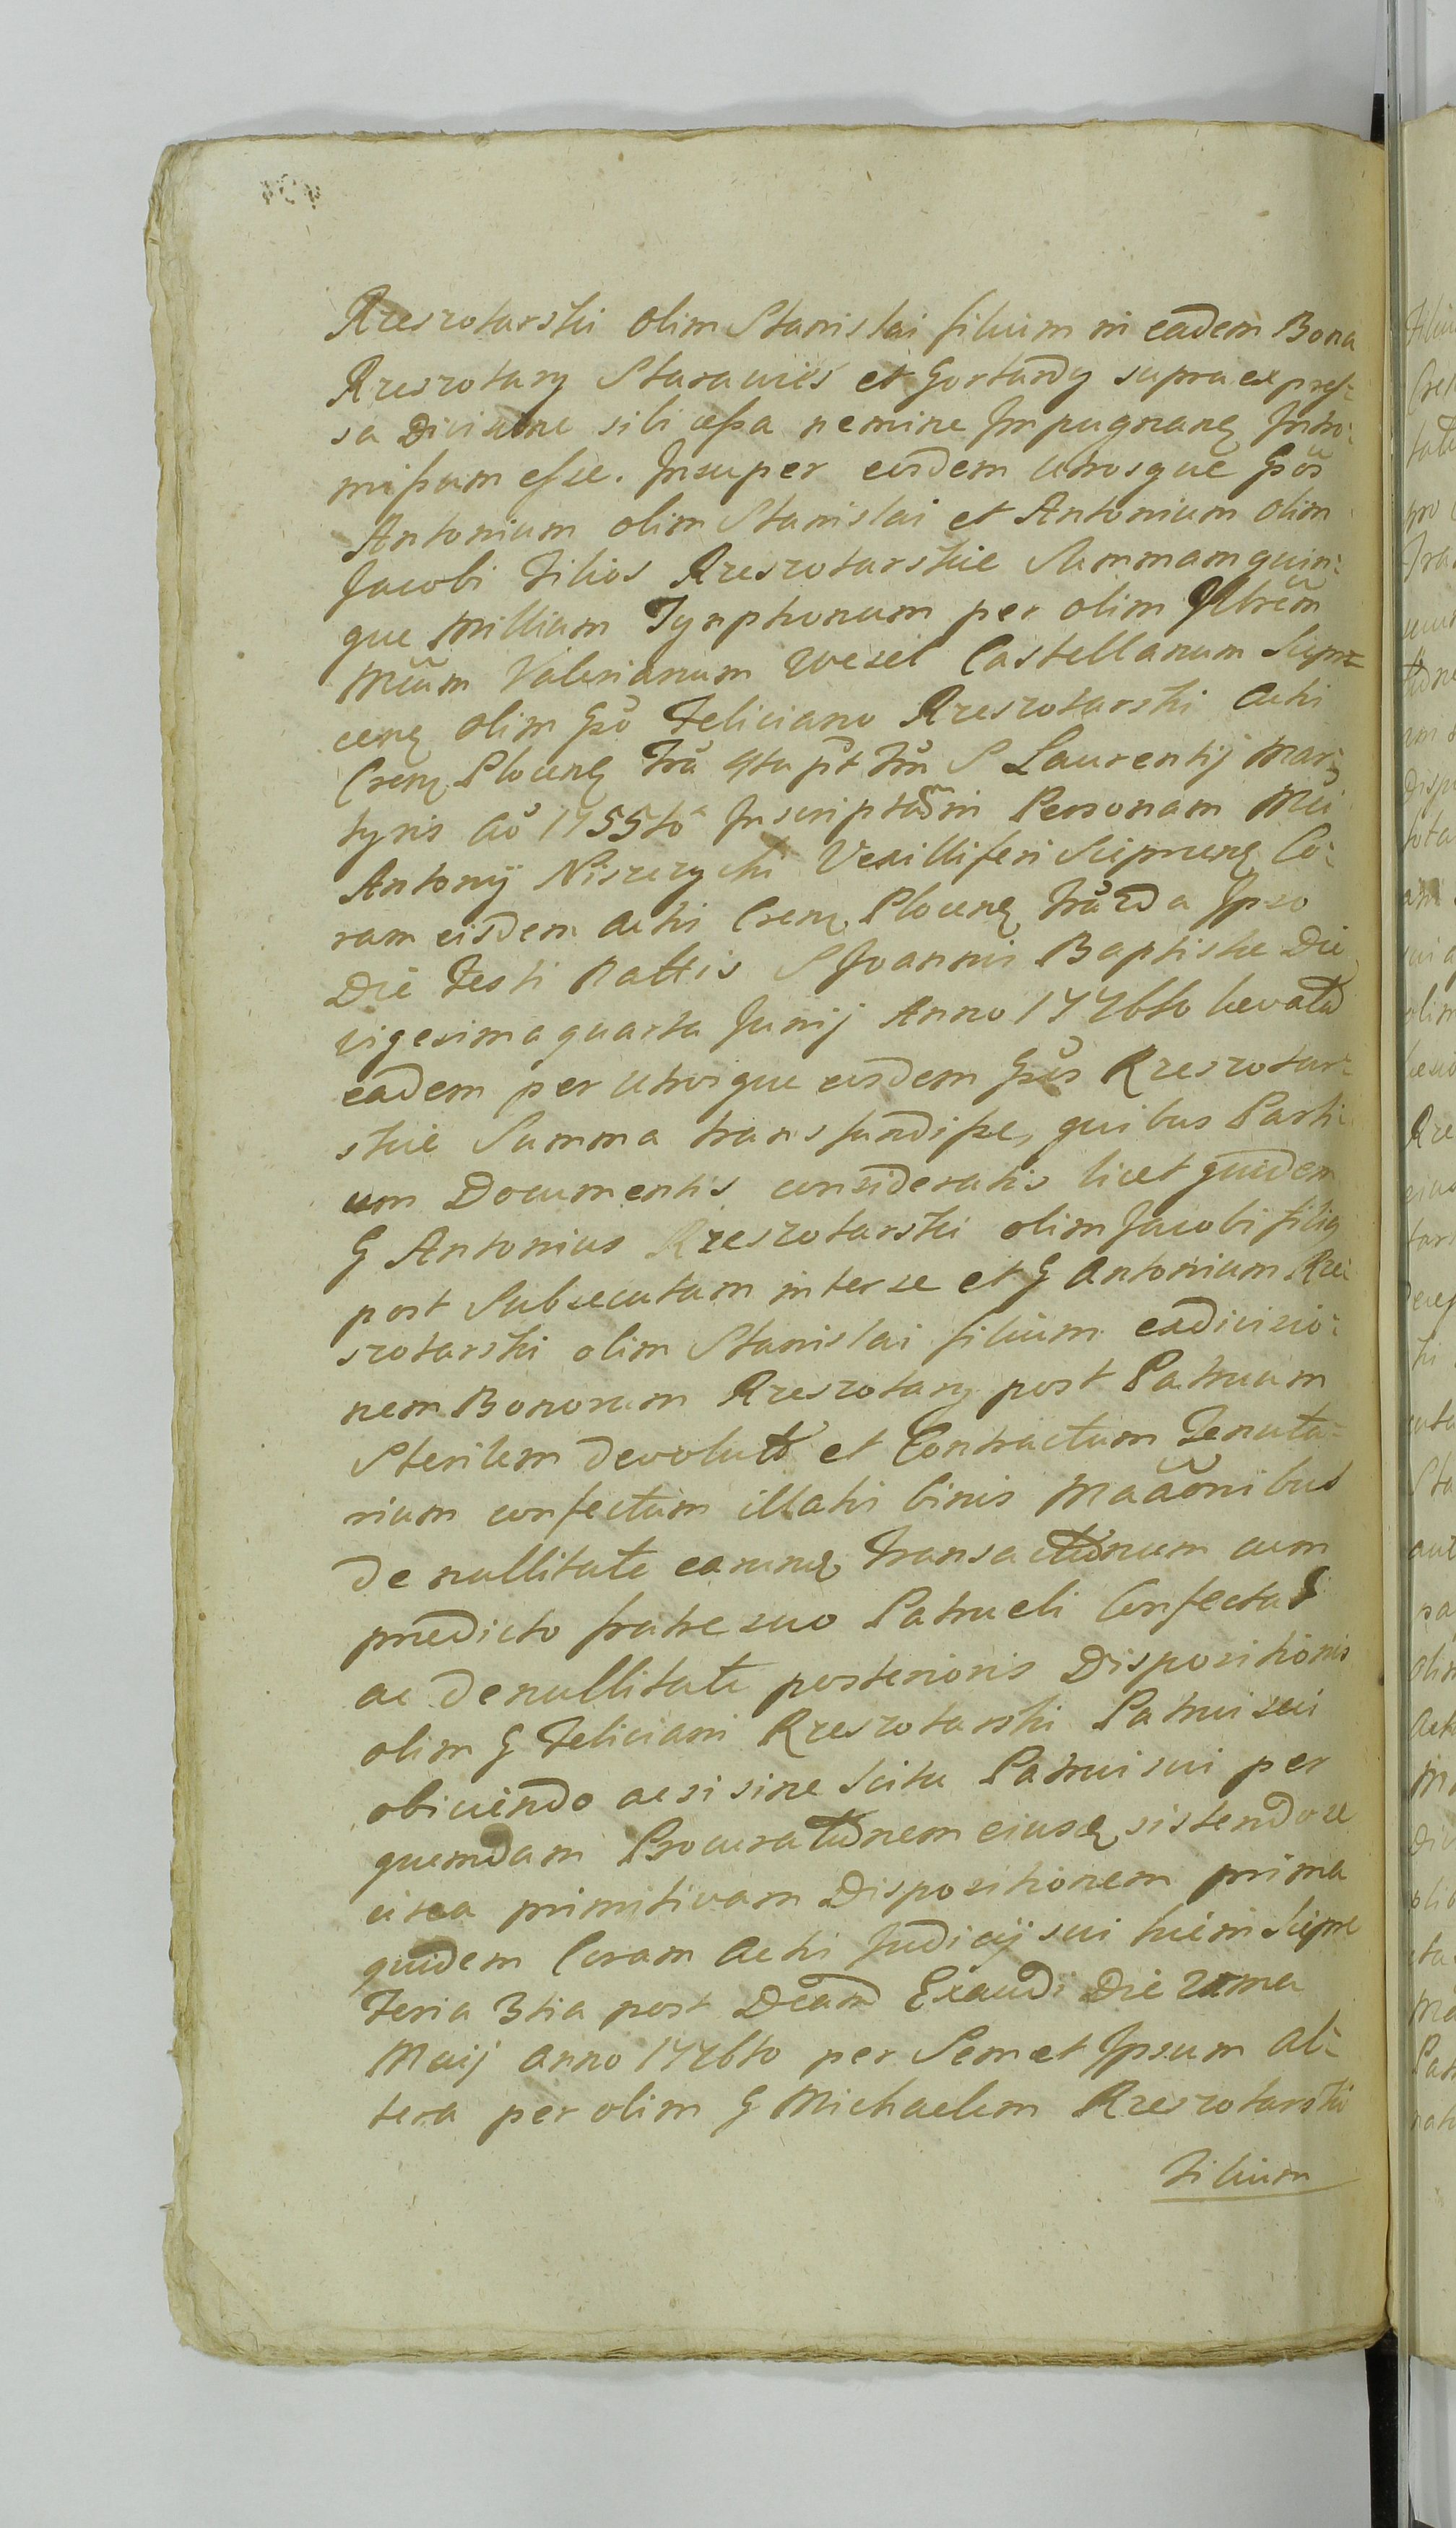 Rzeszotarski olim Stanislai filium in eadem Bona
Rzeszotary Starawieś et Gortardy supra expres-
sa Divisione sibi cessa nemine Impugnanę Intro-
missum esse. Insuper eosdem Utrosque Gsos
Antonium olim Stanislai et Antonium olim
Jacobi Filios Rzeszotarskie Summam quin-
que Millium Tynphonum per olim Illrem
Mcum Valerianum Wesel Castellanum Siepr=
cenę olim Gso Feliciano Rzeszotarski Actis
Crenę Plocenę fra 4ta pt ftm S Laurentij Mar-
tyris Ao 1755to Inscriptam in Personam Mci
Antonij Niszczycki Vexilliferi Sieprcenę Co-
ram eisdem Actis Crenę Plocenę fra 2da Ipso
Die Festi Nattis S Joannis Baptistae Die
vigesima quarta Junij Anno 1776to levata
eadem per Utrosque eosdem Gsos Rzeszotar-
skie Summa transfundisse, quibus Parti-
um Documentis consideratis licet quidem
G Antonius Rzeszotarski olim Jacobi filius
post Subsecutam inter se et G Antonium Rze-
szotarski olim Stanislai filium exdivisio-
nem Bonorum Rzeszotary post Patruum
Sterilem devolut et Contractum Tenuta-
rium confectum illatis binis Maaonibus
de nullitate earunę Transactionum cum
praedicto fratre suo Patrueli Confectas
ac de nullitate posterioris Dispositionis
olim G Feliciani Rzeszotarski Patrui sui
obiciendo acsi sine Scitu Patrui sui per
quemdam Procurationem eiusę sistendo se
circa primitivam Dispositionem prima
quidem Coram Actis Judicij sui huiem Siepre
Feria 3tia post Dcam Exaudi Die 21ma
Maij Anno 1776to per Semet Ipsum al-
tera per olim G Michaelem Rzeszotarski
Filium